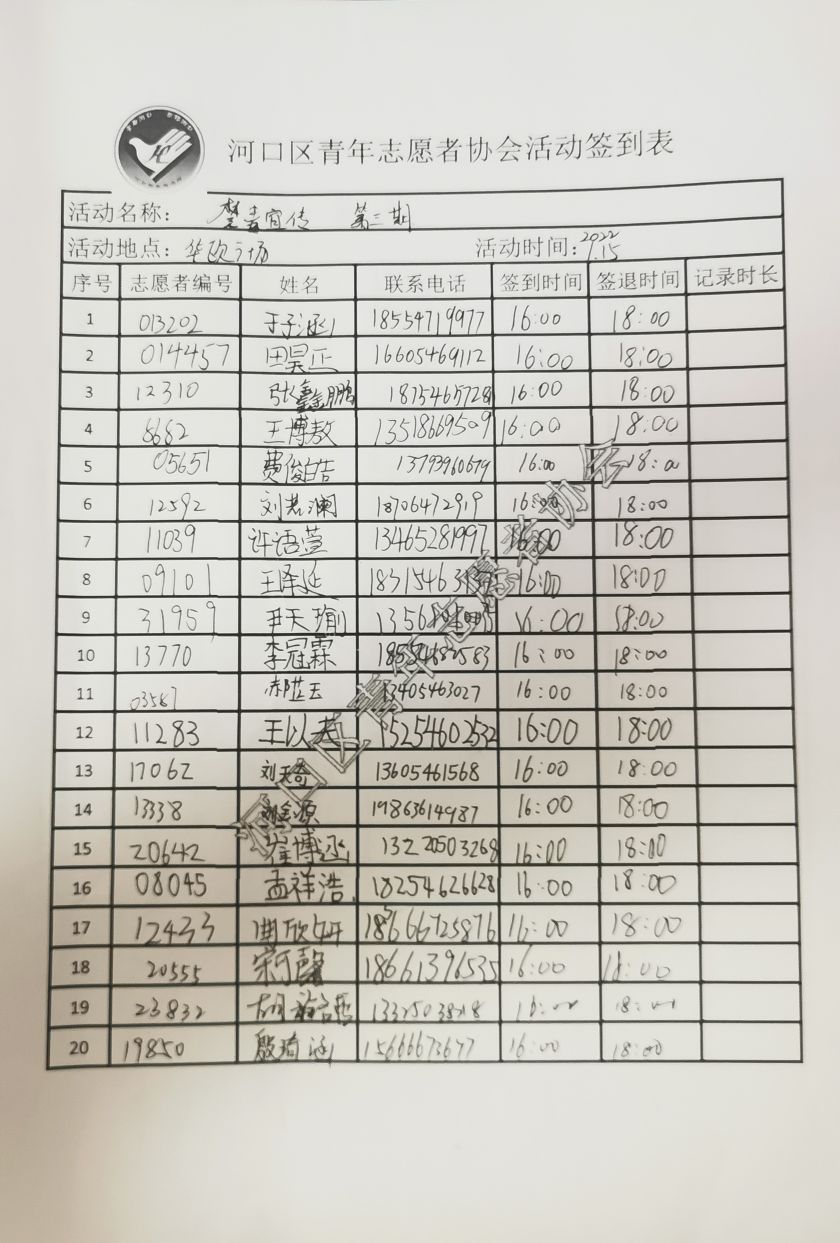 河口区青年志愿者协会活动签到表
活动名称： 禁毒宣传 第三期
活动地点：华欧广场 活动时间：2022 7.15
序号 志愿者编号 姓名 联系电话 签到时间 签退时间 记录时长
1 013202 于子涵 18554719977 16:00 18:00
2 014457 田昊正 16605469112 16:00 18:00
3 12310 张鑫鹏 18754657728 16:00 18:00
4 8682 王博敖 13518669509 16:00 18:00
5 05651 费俊皓 13793960679 16:00 18:00
6 12592 刘若澜 18706472919 16:00 18:00
7 11039 许语萱 13465281997 16:00 18:00
8 09101 王泽延 16:00 18:00
9 31959 尹天瑜 16:00 18:00
10 13770 李冠霖 16:00 18:00
11 03587 郝芷玉 13405463027 16:00 18:00
12 11283 王以 15254602532 16:00 18:00
13 17062 刘天奇 13605461568 16:00 18:00
14 13338 源 19863614987 16:00 18:00
15 20642 崔博涵 13220503268 16:00 18:00
16 08045 孟祥浩 18254626628 16:00 18:00
17 12433 欣妍 18:00 16:00
18 20555 馨 18661396535 16:00 18:00
19 23832 胡 16:00 18:00
20 19850 殷琦涵 15666673677 16:00 18:00
河口区青年志愿者协会